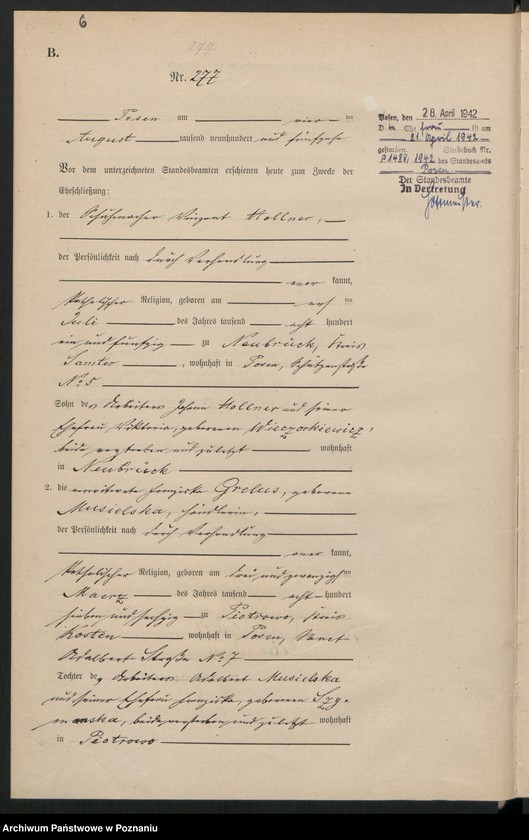 6
277
B.
Nr. 277
Posen am vier ten
August tausend neunhundert und
Vor dem unterzeichneten Standesbeamten erschienen heute zum Zwecke der
Eheschließung:
1. der Schuhmacher Vinzent Hollner,
der Persönlichkeit nach durch Verhandlung
kannt,
katholischer Religion, geboren am ten
Juli des Jahres tausend acht hundert
ein und fünfzig zu Neubrück, Kreis
Samter, wohnhaft in Posen, Schützenstraße
No 5
Sohn des Arbeiters Johann Hollner und seiner
Ehefrau Viktoria, geborenen Wieczorkiewicz,
beide verstorben und zuletzt wohnhaft
in Neubrück
2. die verwitwete Franziska Grelus, geborene
Musielska, Händlerin,
der Persönlichkeit nach durch Verhandlung
kannt,
katholischer Religion, geboren am drei und zwanzigsten
Maerz des Jahres tausend acht hundert
sieben und sechzig zu Piotrowo, Kreis
Kosten wohnhaft in Posen, Sanct
Adalbert Straße No 7
Tochter des Arbeiters Adalbert Musielska
und seiner Ehefrau Franziska, geborenen
beide verstorben und zuletzt wohnhaft
in Piotrowo
Posen, den 28. April 1942
D ie Ehefrau ist am
21. April 1942
gestorben. Sterbebuch Nr.
1488/1942 des Standesamts
Posen.
Der Standesbeamte
In Vertretung
Archiwum Państwowe w Poznaniu